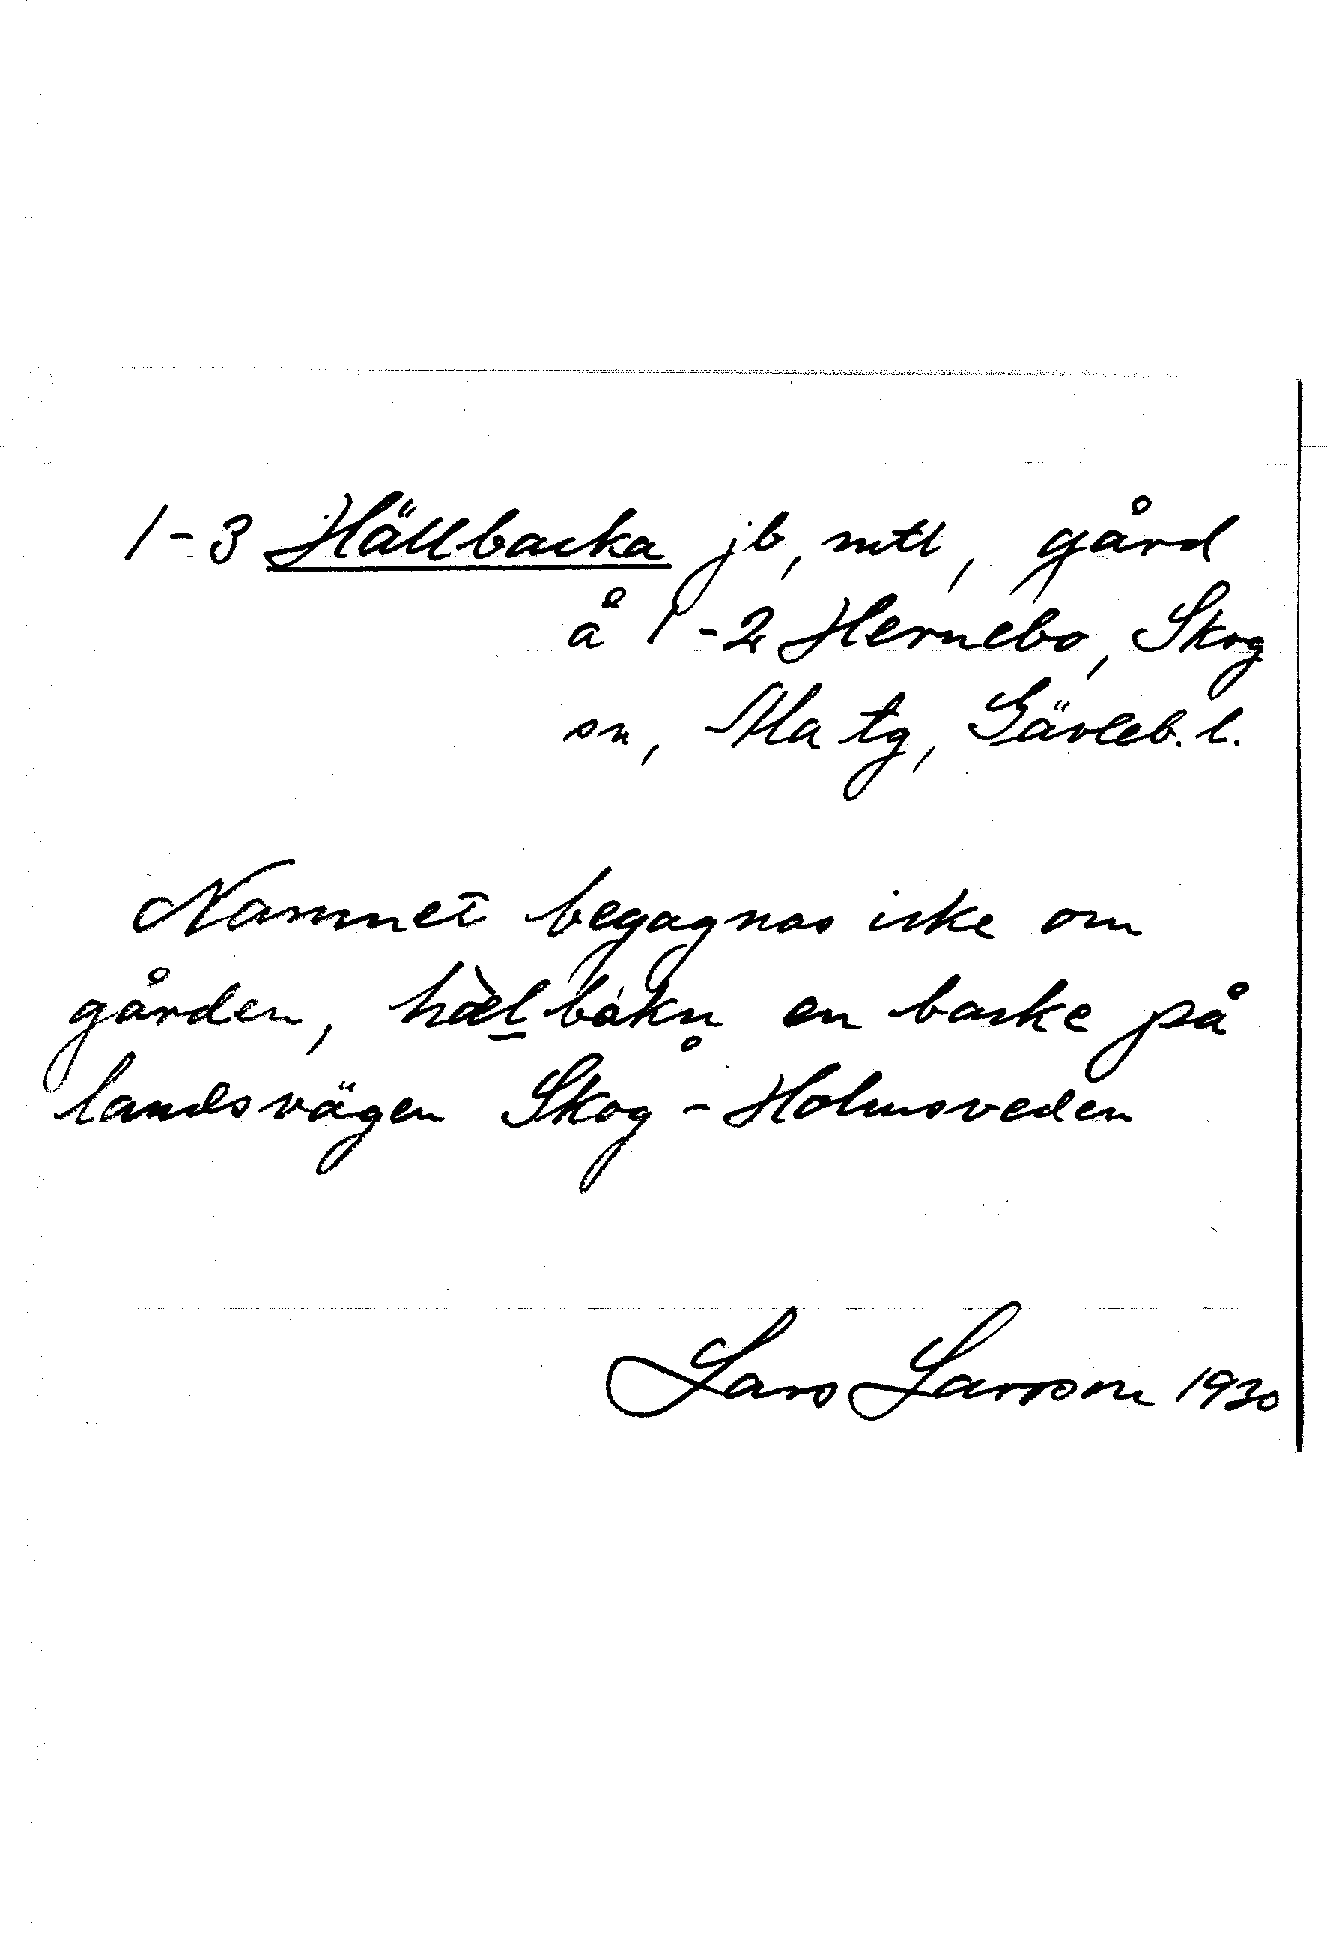 1-3 Hällbacka jb, mtl, gård
å 1-2 Hernebo, Skog
sn, Ala tg, Gävleb. l.
Namnet begagnas icke om
gården, hæ̀l bákn̥ en backe på
landsvägen Skog - Holmsveden
Lars Larsson 1930